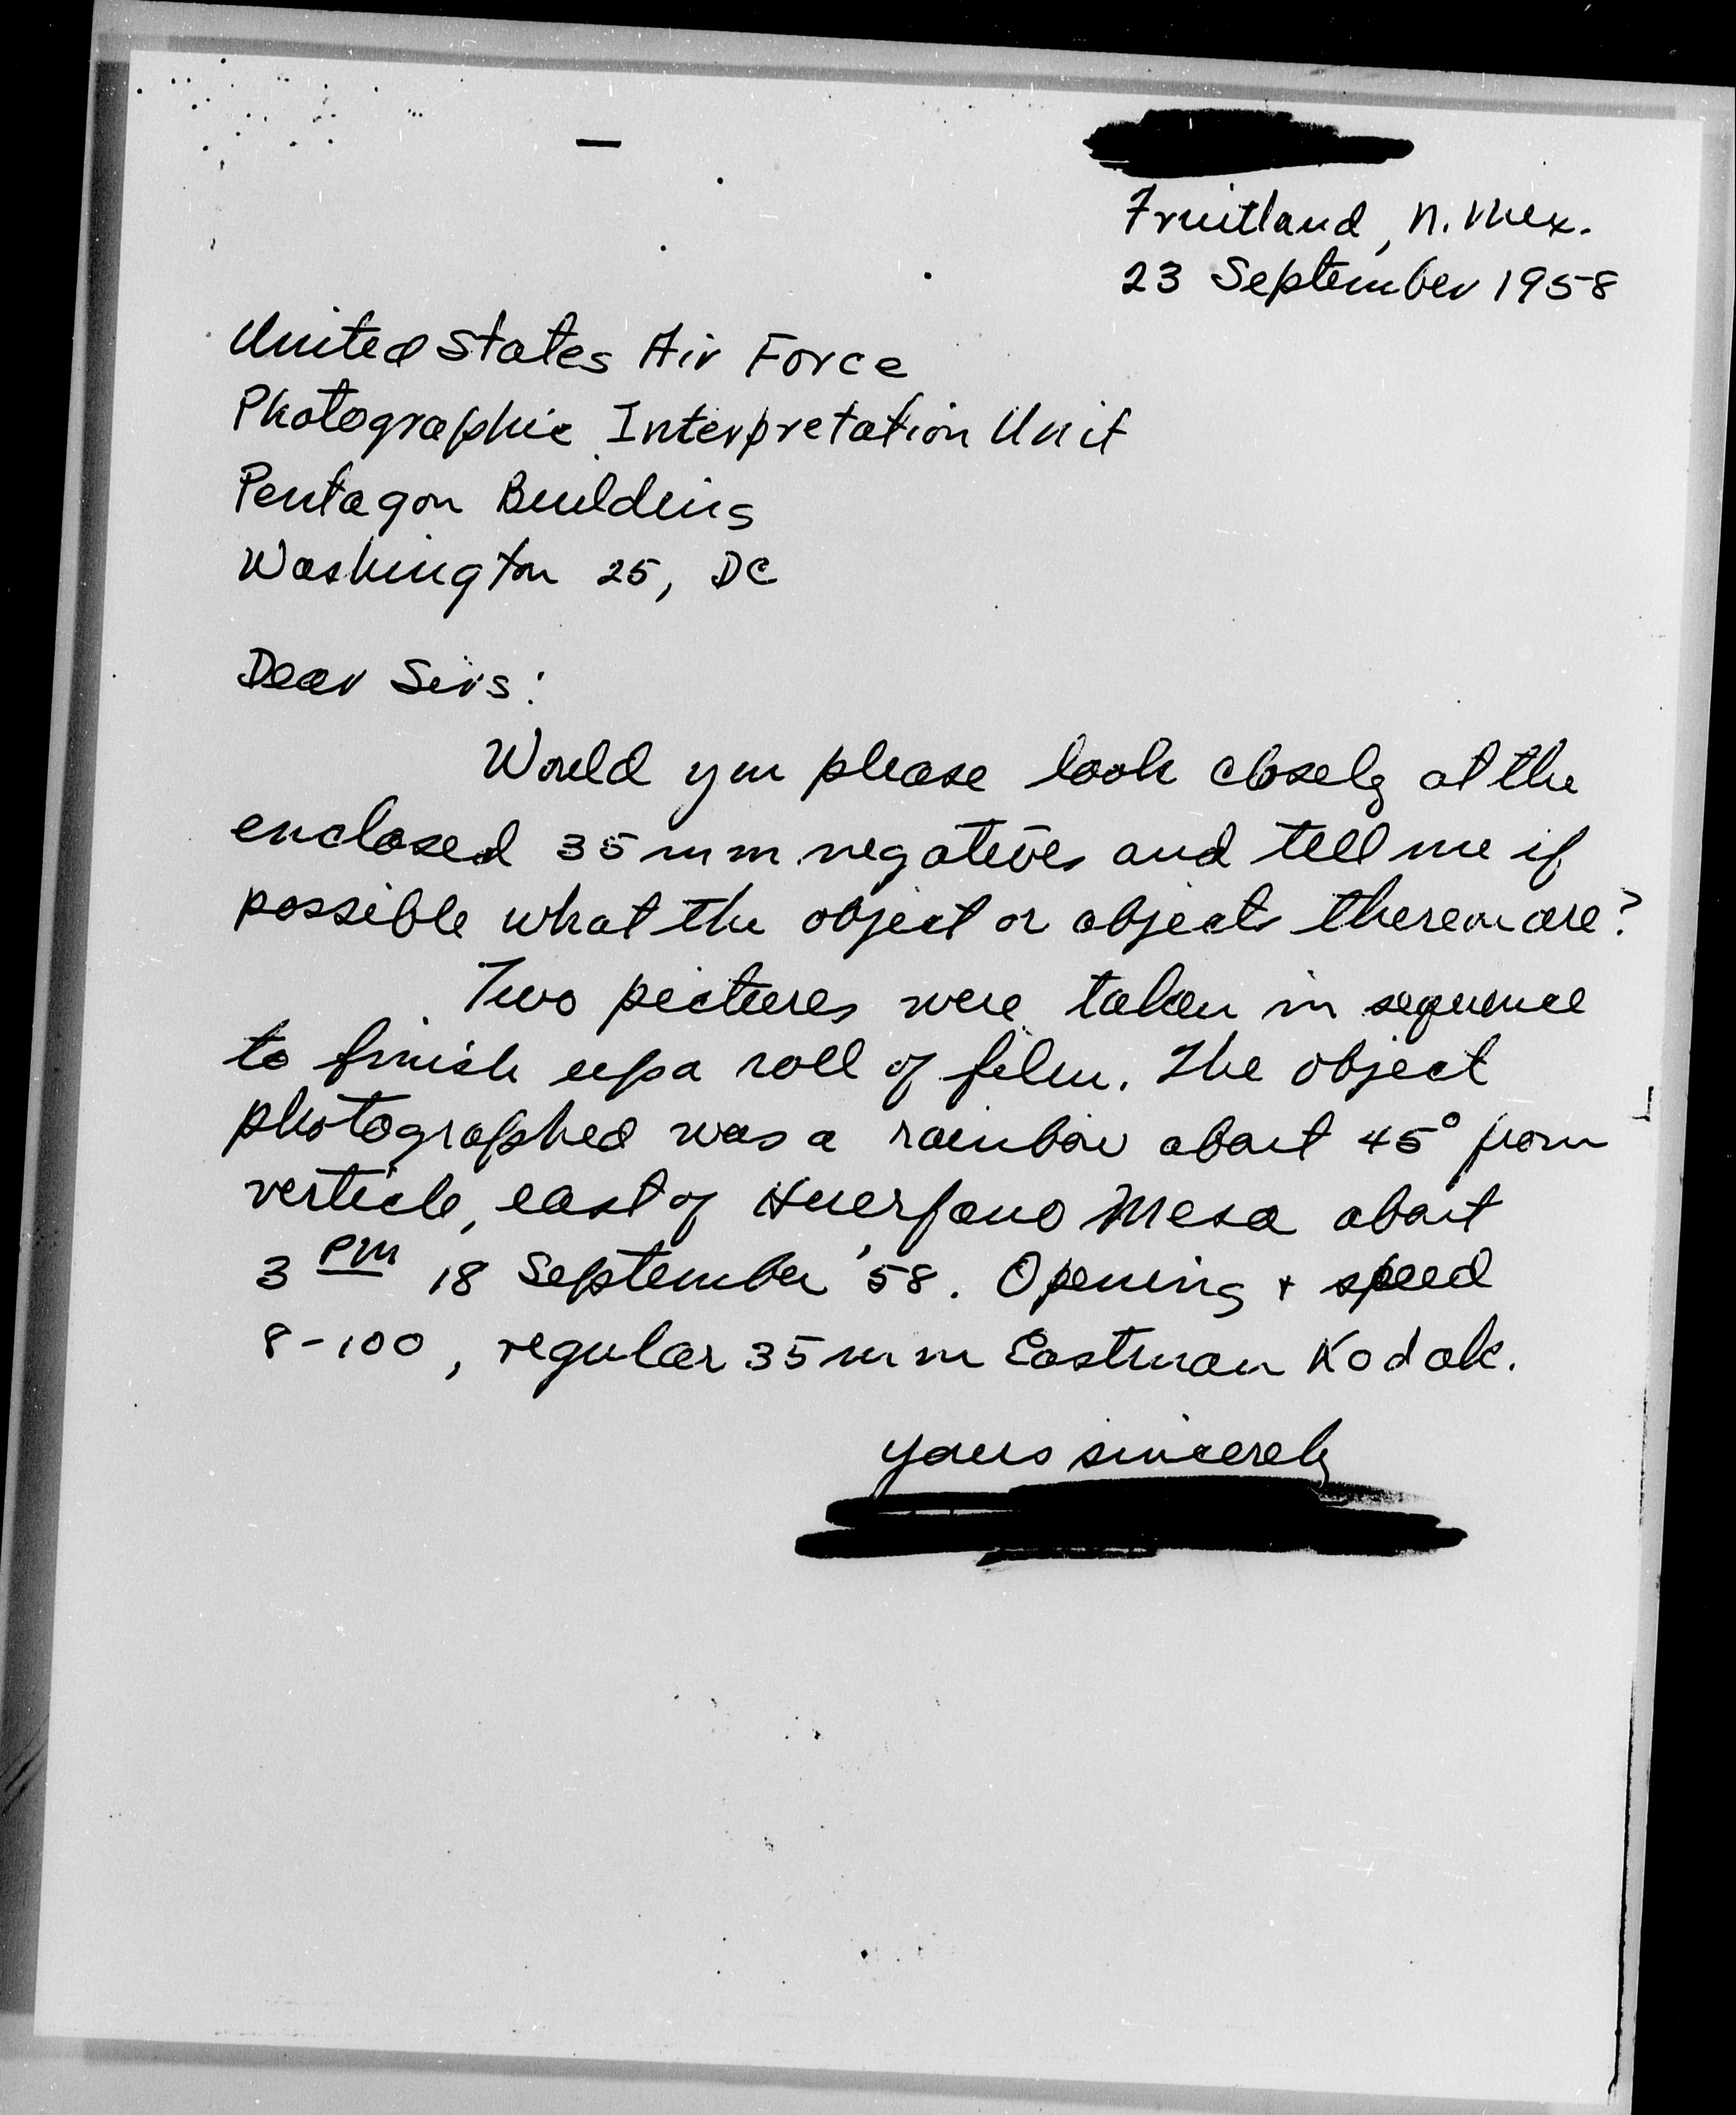 Fruitland, N. Mex.
23 September 1958
United States Air Force
Photographic Interpretation Unit
Pentagon Building
Washington 25, DC
Dear Sirs:
Would you please look closely at the
enclosed 35 mm negatives and tell me if
possible what the object or objects thereon are?
Two pictures were taken in sequence
to finish up a roll of film. The object
photographed was a rainbow about 45° from
verticle, east of Huerfano Mesa about
3 PM 18 September '58. Opening + speed
8-100, regular 35 mm Eastman Kodak.
yours sincerely